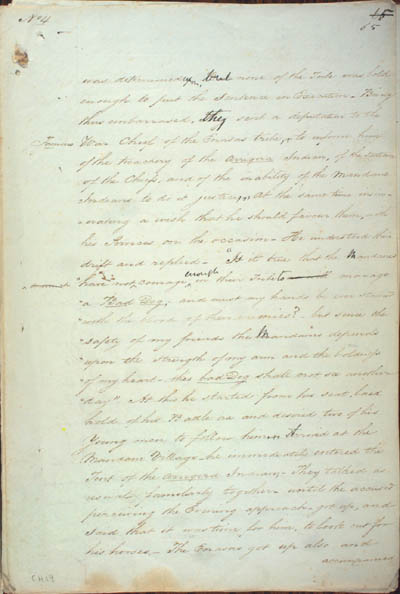 No. 4
65
was determined on, but none of the Tribe was bold
enough to put the Sentence in Execution. Being
thus embarrassed, they sent a deputation to the
Famous
War Chief of the Erasas tribe, to inform him
of the treachery of the Indian, of the
of the Chiefs, and of the inability of the Mandane
Indians to do it justice. At the same time insin-
-uating a wish that he should favour them,
his Services on the occasion. He understood their
drift and replied. "Is it true that the Mandanes
"have not courage enough in their Tribe to manage
"a Bad Dog, and must my hands be ever stained
"with the blood of their enemies? but since the
"safety of my friends the Mandanes depends
"upon the strength of my arm and the boldness
"of my heart - this bad Dog shall not see another
"day." At this he started from his seat, laid
hold of his Battle axe and desired two of his
Young men to follow him. Arrived at the
Mandane Village he immediately entered the
Tent of the Indian. They talked as
usual, familiarly together until the accused
perceiving the Evening approach, got up, and
said that it was time for him to look out for
his horses. The Erasas got up also and
accompanied